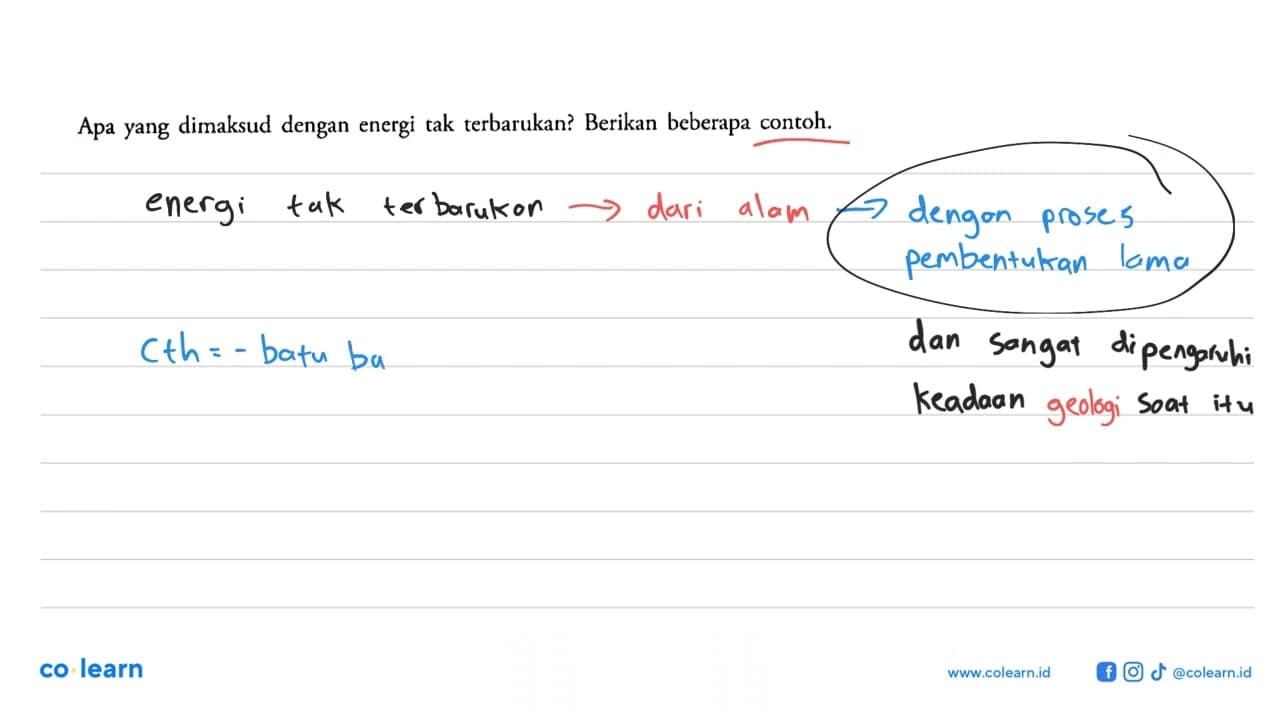 Apa yang dimaksud dengan energi tak terbarukan? Berikan beberapa contoh.
energi tak terbarukan → dari alam → dengan proses
pembentukan lama
dan sangat dipengaruhi
keadaan geologi saat itu
Cth = - batu ba
co learn
www.colearn.id @colearn.id